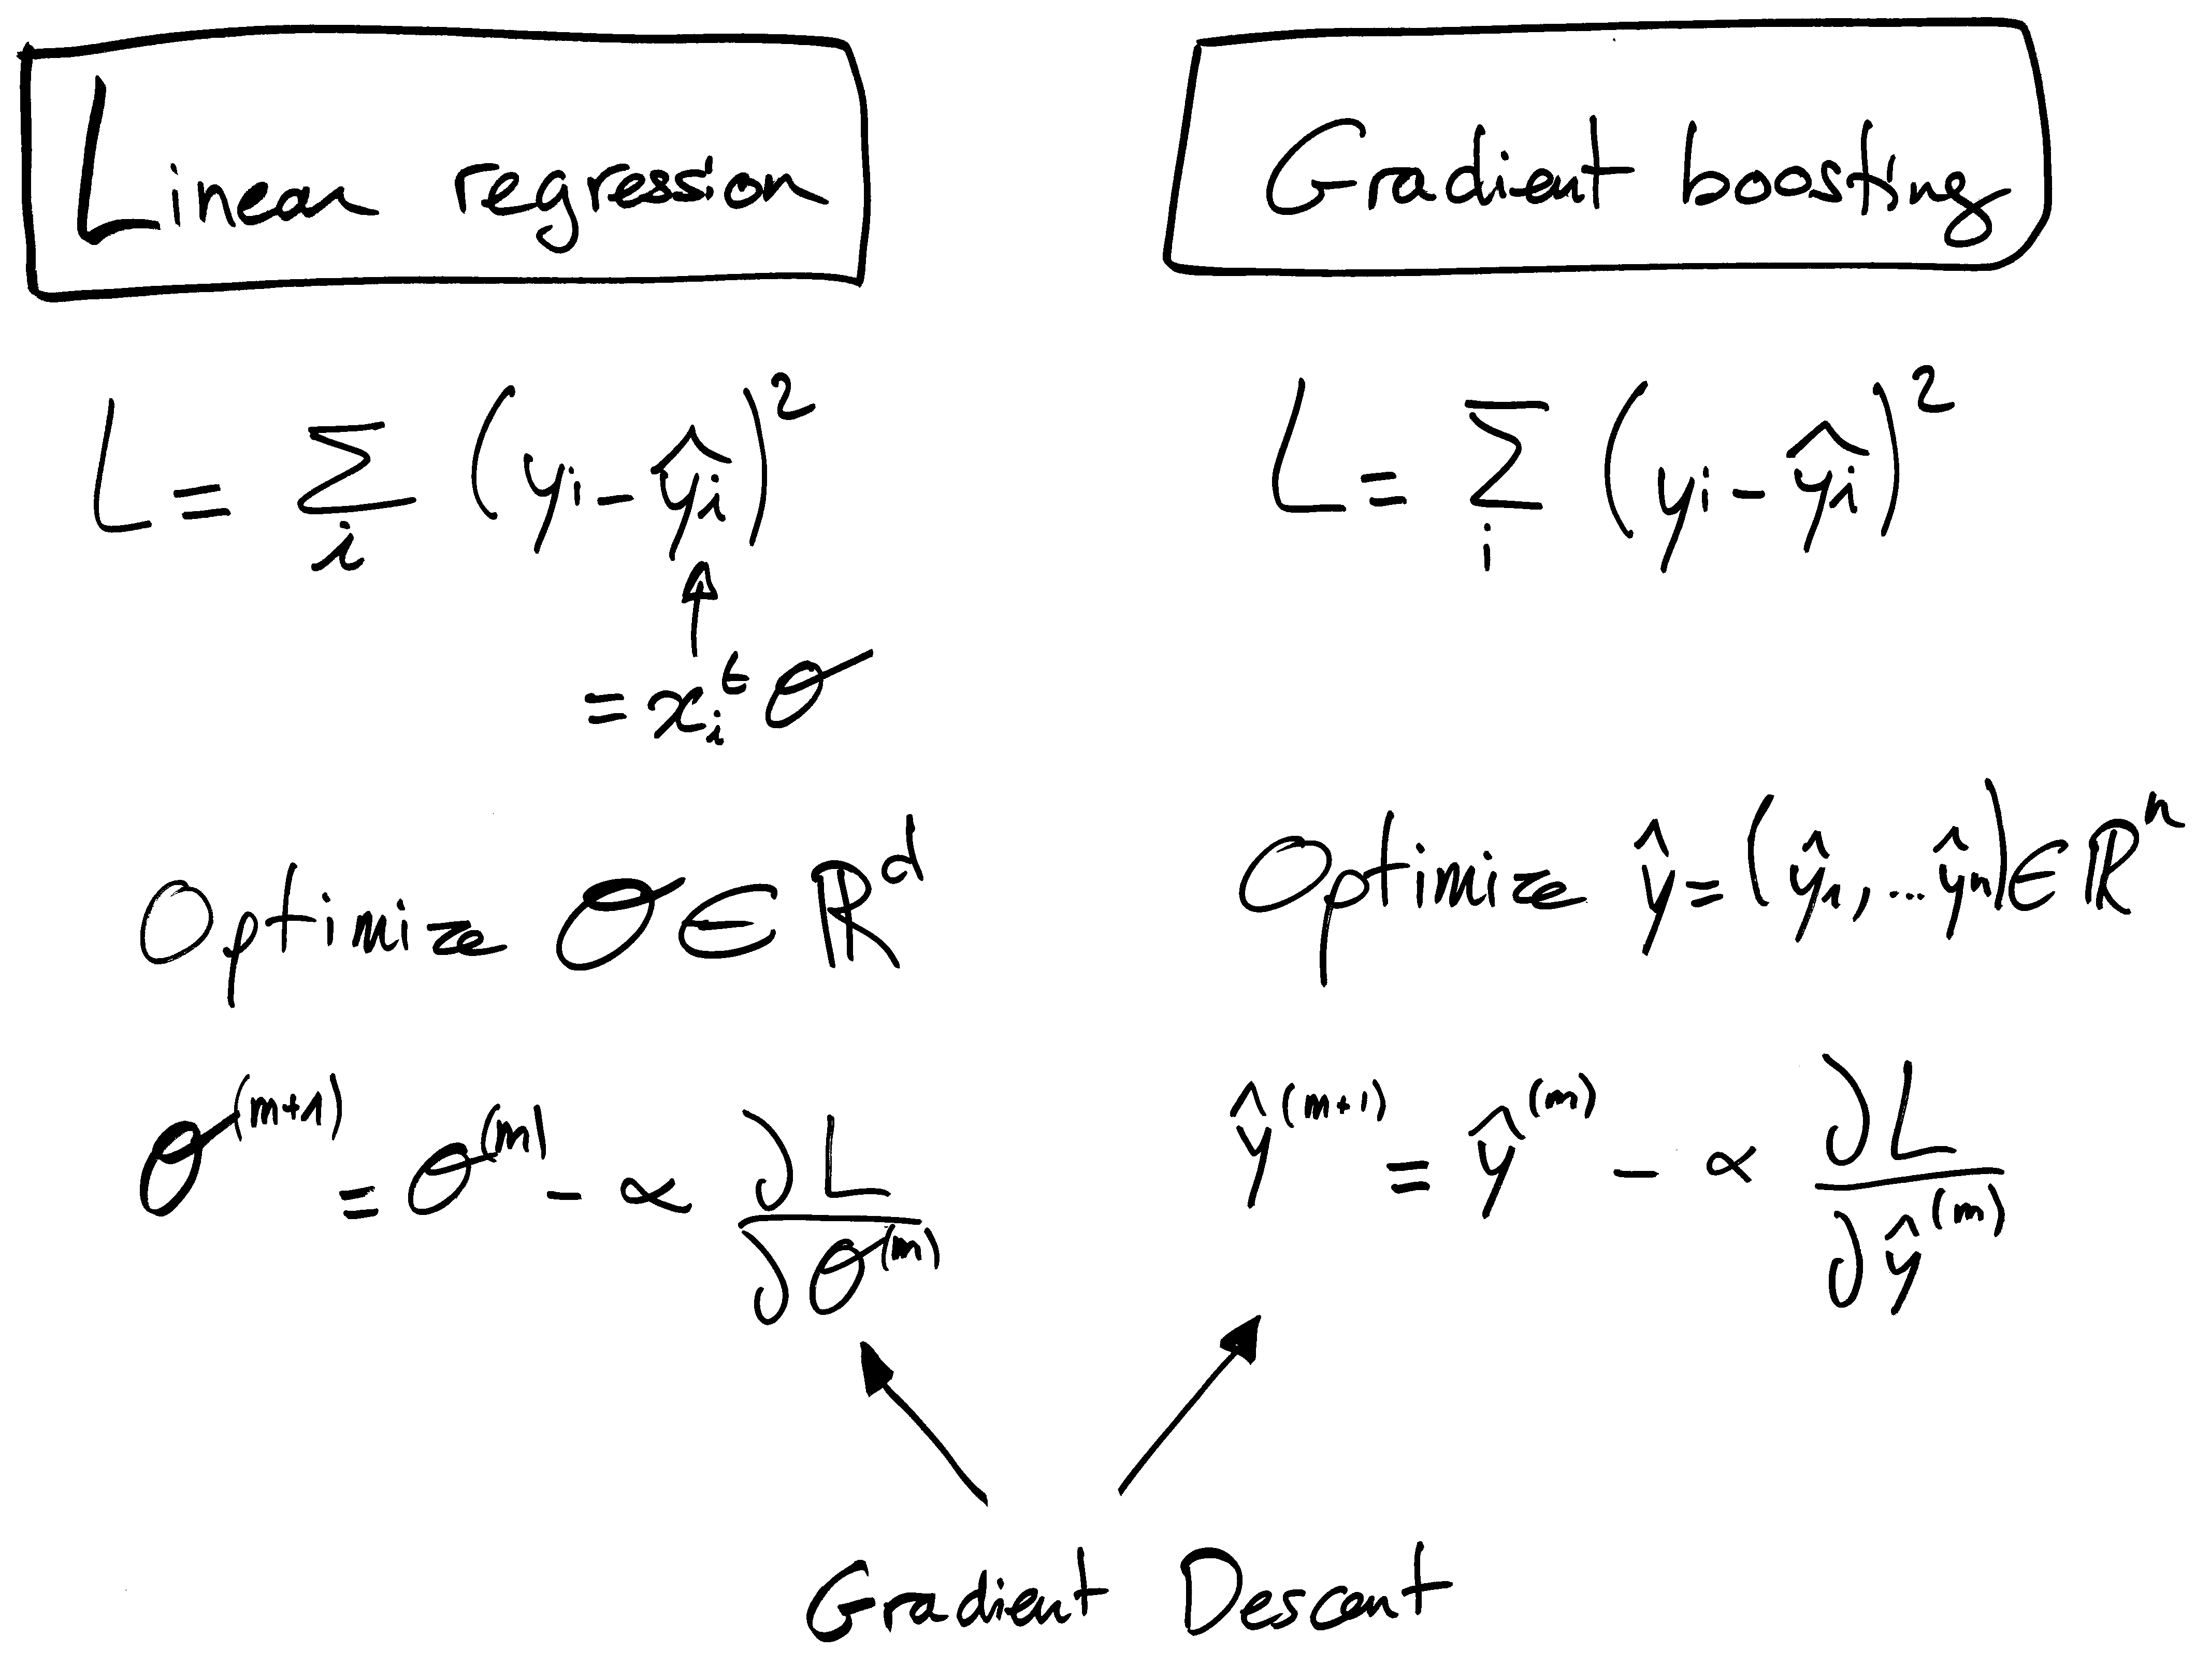 Linear regression
L = ∑_i (y_i - ŷ_i)^2
↑
= x_i^t θ
Optimize θ ∈ ℝ^d
θ^(m+1) = θ^(m) - α ∂L/∂θ^(m)
Gradient boosting
L = ∑_i (y_i - ŷ_i)^2
Optimize ŷ = (ŷ_1, ... ŷ_n) ∈ ℝ^n
ŷ^(m+1) = ŷ^(m) - α ∂L/∂ŷ^(m)
Gradient Descent